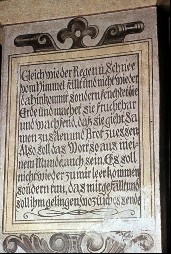 Gleich wie der Regen u. Schnee
vom Himmel fällt und nicht wieder
dahin kommt, sondern feuchtet die
Erde und machet sie fruchtbar
und wachsend, daß sie gibt Sa
men zu säen und Brot zu essen
Also soll das Wort so aus mei
nem Munde auch sein. Es soll
nicht wieder zu mir leer kommen
sondern tun, das mir gefällt und
soll ihm gelingen, wozu ich es sende